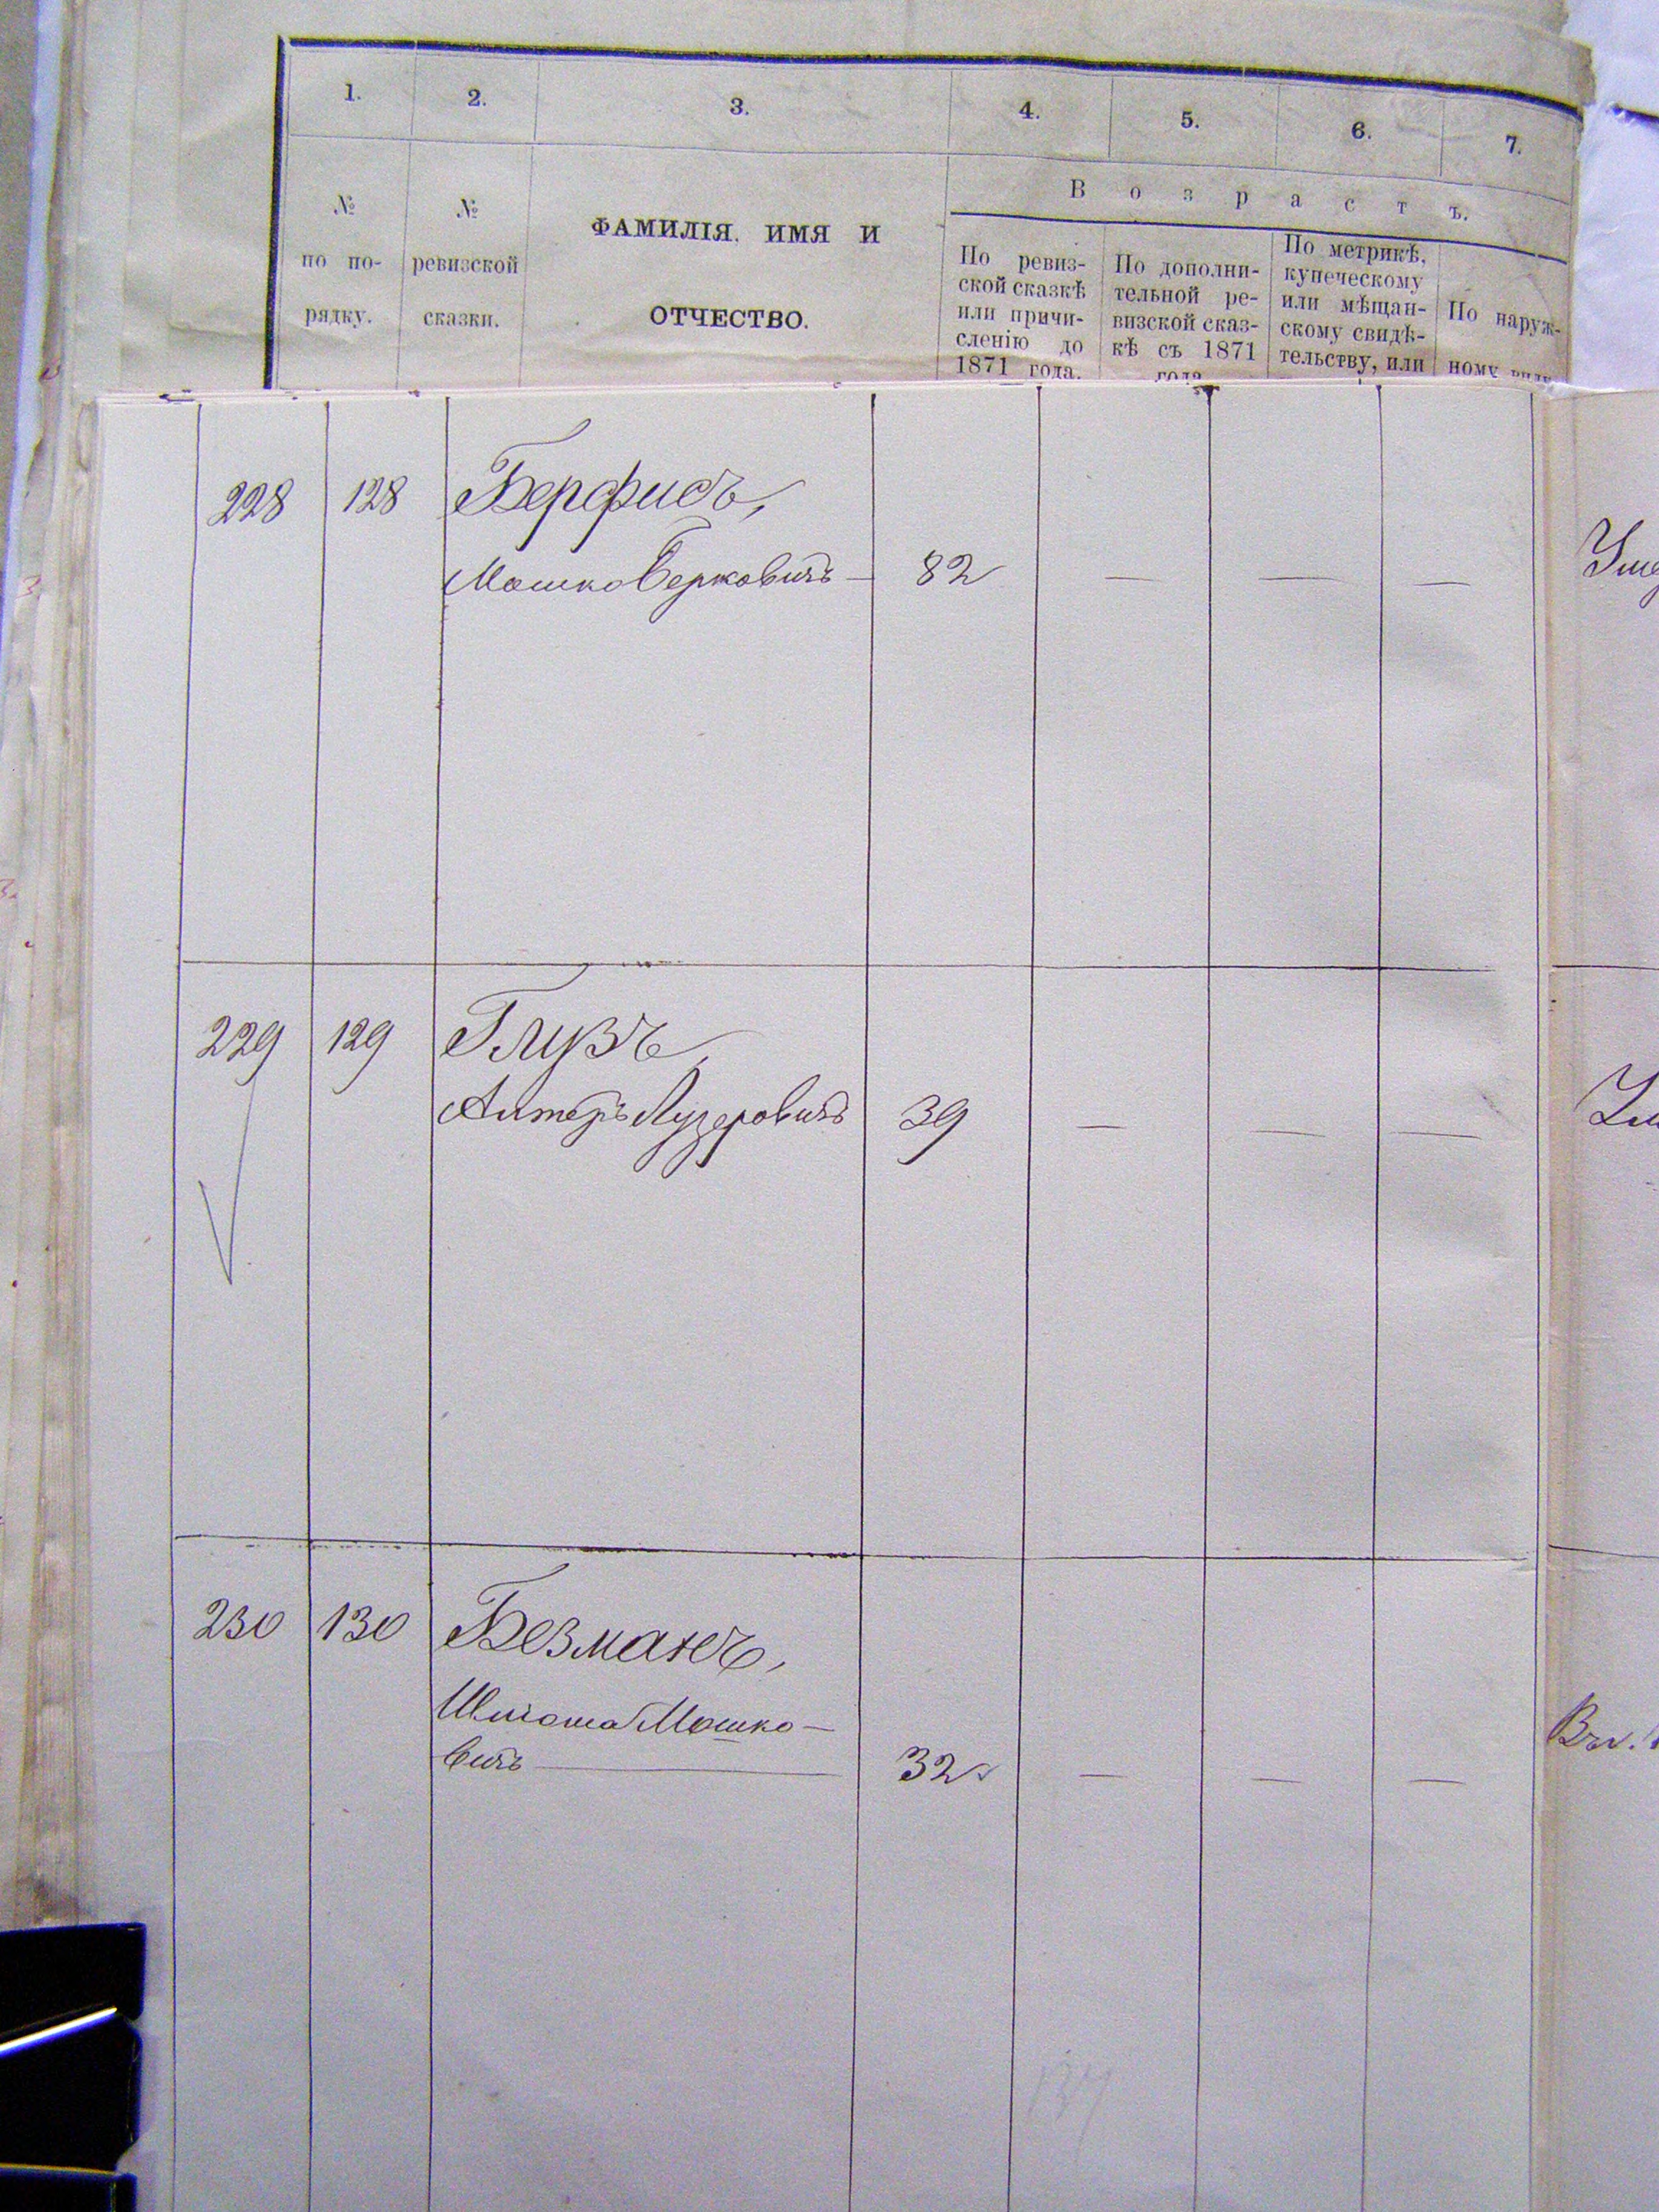 1. 2. 3. 4. 5. 6. 7.
№ по по- рядку.
№ ревизской сказки.
ФАМИЛІЯ, ИМЯ И
ОТЧЕСТВО.
Возрастъ.
По ревиз-
ской сказкѣ
или причи-
сленію до
1871 года.
По дополни-
тельной ре-
визской сказ-
кѣ съ 1871
года
По метрикѣ,
купеческому
или мѣщан-
скому свидѣ-
тельству, или
По наруж-
ному виду
228 128 Берфисъ,
Мошко Берковичъ — 82 — — —
229 129 Глузъ,
Алтеръ Лузеровичъ 39 — — —
230 130 Безманъ,
Шліома Мошко-
вичъ — 32 — — —